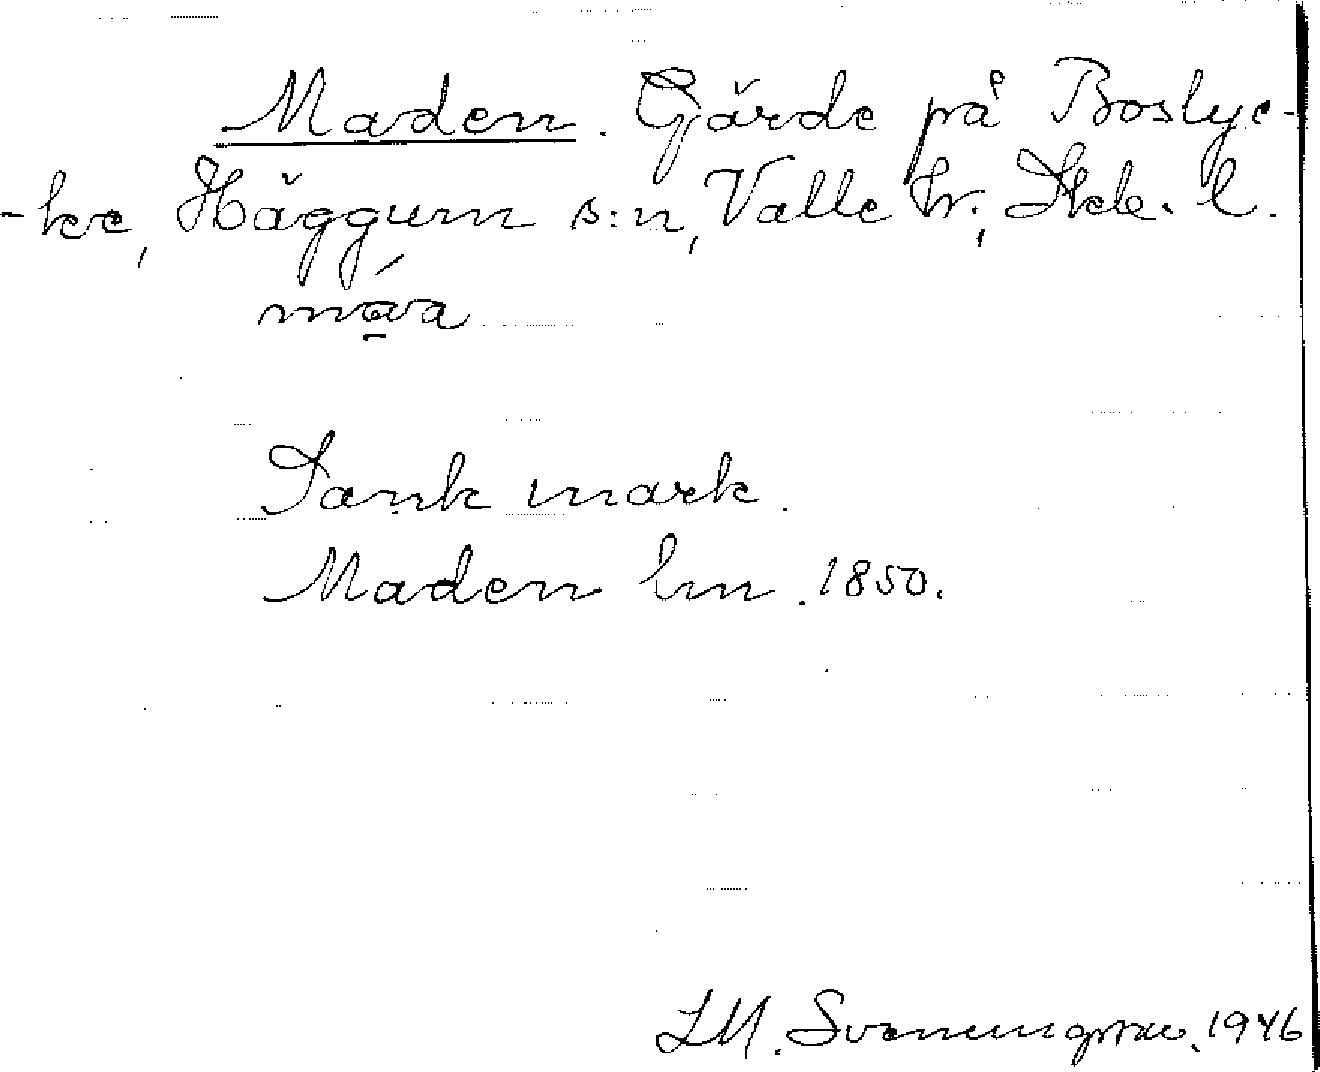 Maden. Gärde på Boslyc-
-ke, Häggum s:n, Valle hr., Skb. l.
máva
Sank mark.
Maden lm. 1850.
LM. Svenungsson. 1946